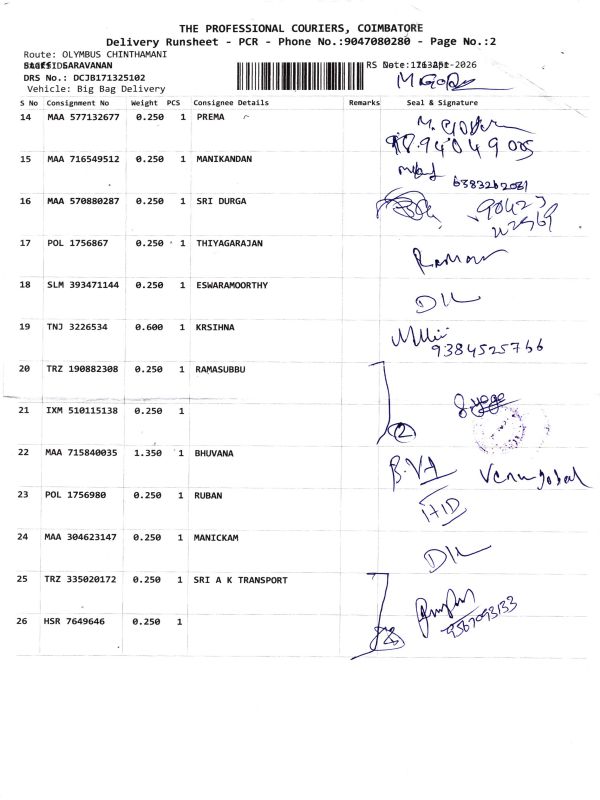 THE PROFESSIONAL COURIERS, COIMBATORE
Delivery Runsheet - PCR - Phone No.:9047080280 - Page No.:2
Route: OLYMBUS CHINTHAMANI
SARAVANAN
DRS No.: DCJB171325102
Vehicle: Big Bag Delivery
S No Consignment No Weight PCS Consignee Details Remarks Seal & Signature
14 MAA 577132677 0.250 1 PREMA
15 MAA 716549512 0.250 1 MANIKANDAN
6383262081
16 MAA 570880287 0.250 1 SRI DURGA
17 POL 1756867 0.250 1 THIYAGARAJAN
18 SLM 393471144 0.250 1 ESWARAMOORTHY
19 TNJ 3226534 0.600 1 KRSIHNA
9384525766
20 TRZ 190882308 0.250 1 RAMASUBBU
21 IXM 510115138 0.250 1
2
22 MAA 715840035 1.350 1 BHUVANA
Venugobal
23 POL 1756980 0.250 1 RUBAN
24 MAA 304623147 0.250 1 MANICKAM
25 TRZ 335020172 0.250 1 SRI A K TRANSPORT
26 HSR 7649646 0.250 1
9367093133